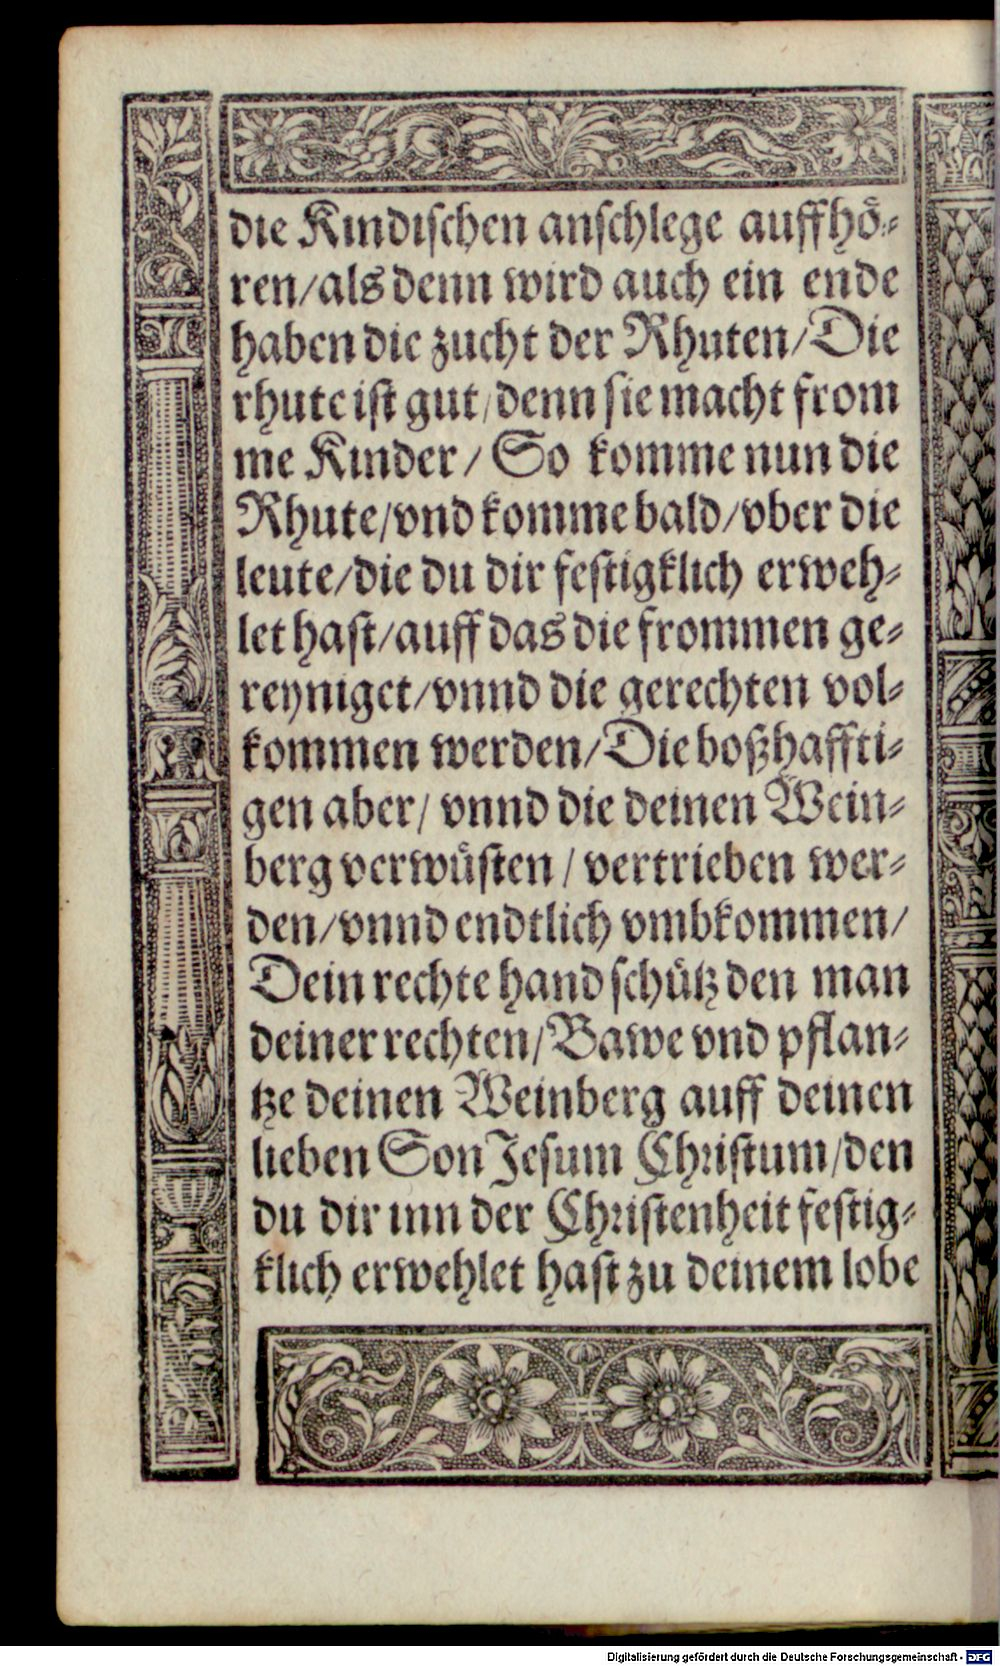 die Kindischen anschlege auffhö-
ren/als denn wird auch ein ende
haben die zucht der Rhuten/Die
rhute ist gut/denn sie macht from
me Kinder/ So komme nun die
Rhute/vnd komme bald/vber die
leute/die du dir festigklich erweh-
let hast/auff das die frommen ge-
reyniget/vnnd die gerechten vol-
kommen werden/Die boßhaffti-
gen aber/ vnnd die deinen Wein-
berg verwüsten / vertrieben wer-
den/vnnd endtlich vmbkommen/
Dein rechte hand schütz den man
deiner rechten/Bawe vnd pflan-
tze deinen Weinberg auff deinen
lieben Son Jesum Christum/den
du dir inn der Christenheit festig-
klich erwehlet hast zu deinem lobe
Digitalisierung gefördert durch die Deutsche Forschungsgemeinschaft - DFG